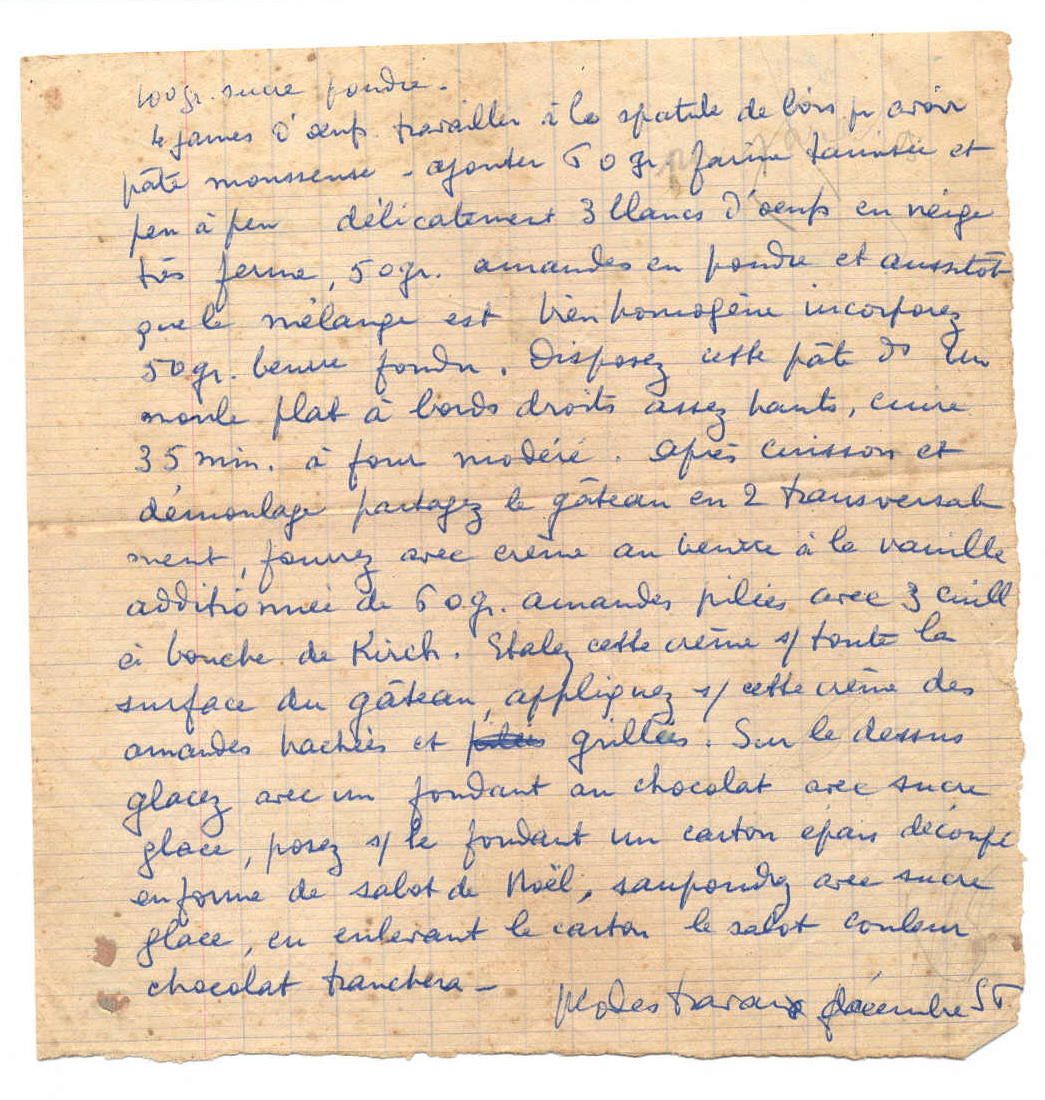 100gr. sucre poudre.
4 jaunes d'oeufs travailler à la spatule de bois pr avoir
pâte mousseuse - ajouter 60gr farine tamisée et
peu à peu délicatement 3 blancs d'oeufs en neige
très ferme, 50gr. amandes en poudre et aussitôt
que le mélange est bien homogène incorporez
50gr. beurre fondu. Disposez cette pâte ds un
moule plat à bords droits assez hauts, cuire
35 min. à four modéré. Après cuisson et
démoulage partagez le gâteau en 2 transversale
ment, fourrez avec crème au beurre à la vanille
additionnée de 60gr. amandes pilées avec 3 cuill
à bouche de Kirch. Etalez cette crème s/ toute la
surface du gâteau, appliquez s/ cette crème des
amandes hachées et pilées grillées. Sur le dessus
glacez avec un fondant au chocolat avec sucre
glace, posez s/ le fondant un carton épais découpé
en forme de sabot de Noël, saupoudrez avec sucre
glace, en enlevant le carton le sabot couleur
chocolat tranchera -
Modes travaux décembre 56